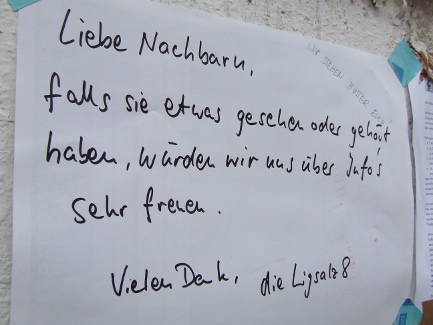 Liebe Nachbarn,
falls sie etwas gesehen oder gehört
haben, würden wir uns über Info's
sehr freuen.
Vielen Dank, die Ligsalz 8
WIR STEHEN HINTER EUCH!